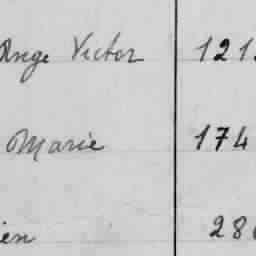 Ange Victor 121
Marie 174
ien 28